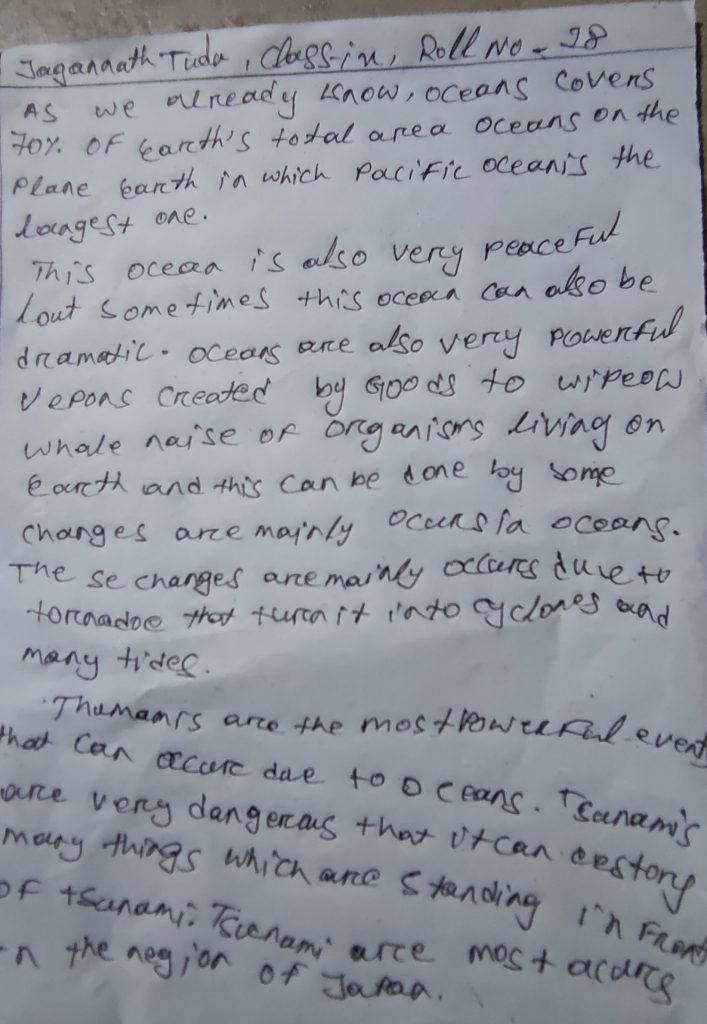 Jagannath Tudu, Class-ix, Roll No - 28
As we already know, oceans covers
70% of earth's total area oceans on the
Plane earth in which Pacific ocean is the
largest one.
This ocean is also very peaceful
but sometimes this ocean can also be
dramatic. oceans are also very powerful
vepons created by Goods to wipeow
whole naise of organisms living on
earth and this can be done by some
changes are mainly ocurs in oceans.
The se changes are mainly occurs due to
tornadoe that turn it into cyclones and
many tides.
are the most Powerful event
that can occure due to oceans. Tsunami's
are very dangerous that it can destory
many things which are standing in front
of tsunami. Tsunami are most acurs
in the region of Japan.